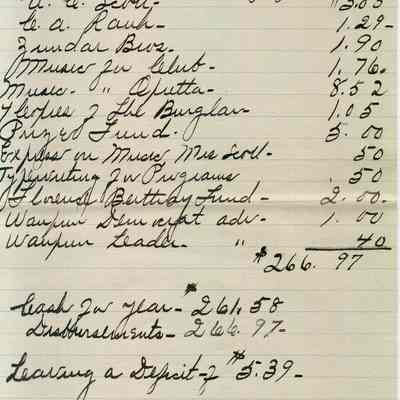 C. A. Rank - 1.29 -
Zundar Bros. - 1.90
Music for Club - 1.76.
Music - " Opretta - 8.52
7 Copies of The Burglar - 1.05
Prizes Fund. 5.00
Express on Music Mrs Scott - 50
Typewriting for Programs . 50
Florence Birthday Fund - 2.00.
Waupun Democrat adv - 1.00
Waupun Leader - " 40
$266.97
Cash for year - $261.58
Disbursements - 266.97 -
Leaving a Deficit - of $5.39 -